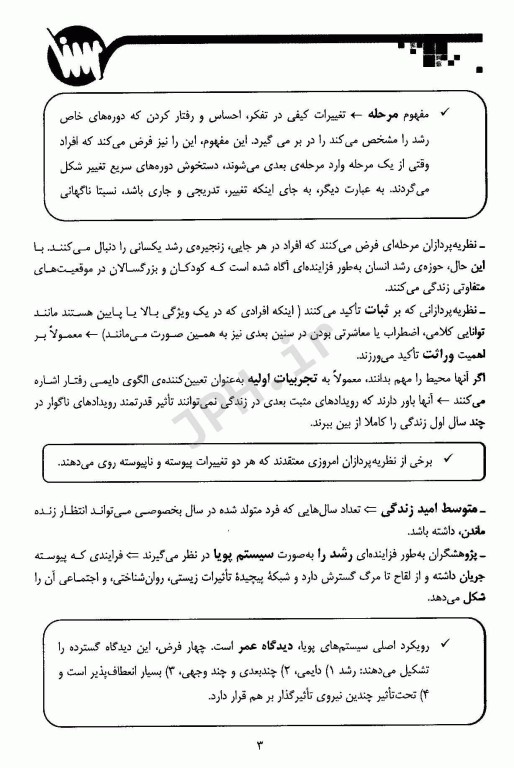 ✓ مفهوم مرحله ← تغییرات کیفی در تفکر، احساس و رفتار کردن که دوره‌های خاص
رشد را مشخص می‌کند را در بر می گیرد. این مفهوم، این را نیز فرض می‌کند که افراد
وقتی از یک مرحله وارد مرحله‌ی بعدی می‌شوند، دستخوش دوره‌های سریع تغییر شکل
می‌گردند. به عبارت دیگر، به جای اینکه تغییر، تدریجی و جاری باشد، نسبتا ناگهانی
ـ نظریه‌پردازان مرحله‌ای فرض می‌کنند که افراد در هر جایی، زنجیره‌ی رشد یکسانی را دنبال می‌کنند. با
این حال، حوزه‌ی رشد انسان به‌طور فزاینده‌ای آگاه شده است که کودکان و بزرگسالان در موقعیت‌های
متفاوتی زندگی می‌کنند.
ـ نظریه‌پردازانی که بر ثبات تأکید می‌کنند ( اینکه افرادی که در یک ویژگی بالا یا پایین هستند مانند
توانایی کلامی، اضطراب یا معاشرتی بودن در سنین بعدی نیز به همین صورت می‌مانند) ← معمولاً بر
اهمیت وراثت تأکید می‌ورزند.
اگر آنها محیط را مهم بدانند، معمولاً به تجربیات اولیه به‌عنوان تعیین‌کننده‌ی الگوی دایمی رفتار اشاره
می‌کنند ← آنها باور دارند که رویدادهای مثبت بعدی در زندگی نمی‌توانند تأثیر قدرتمند رویدادهای ناگوار در
چند سال اول زندگی را کاملا از بین ببرند.
✓ برخی از نظریه‌پردازان امروزی معتقدند که هر دو تغییرات پیوسته و ناپیوسته روی می‌دهند.
ـ متوسط امید زندگی ⇐ تعداد سال‌هایی که فرد متولد شده در سال بخصوصی می‌تواند انتظار زنده
ماندن، داشته باشد.
ـ پژوهشگران به‌طور فزاینده‌ای رشد را به‌صورت سیستم پویا در نظر می‌گیرند ⇐ فرایندی که پیوسته
جریان داشته و از لقاح تا مرگ گسترش دارد و شبکهٔ پیچیدهٔ تأثیرات زیستی، روان‌شناختی، و اجتماعی آن را
شکل می‌دهد.
✓ رویکرد اصلی سیستم‌های پویا، دیدگاه عمر است. چهار فرض، این دیدگاه گسترده را
تشکیل می‌دهند: رشد ۱) دایمی، ۲) چندبعدی و چند وجهی، ۳) بسیار انعطاف‌پذیر است و
۴) تحت‌تأثیر چندین نیروی تأثیرگذار بر هم قرار دارد.
۳
JPH.ir